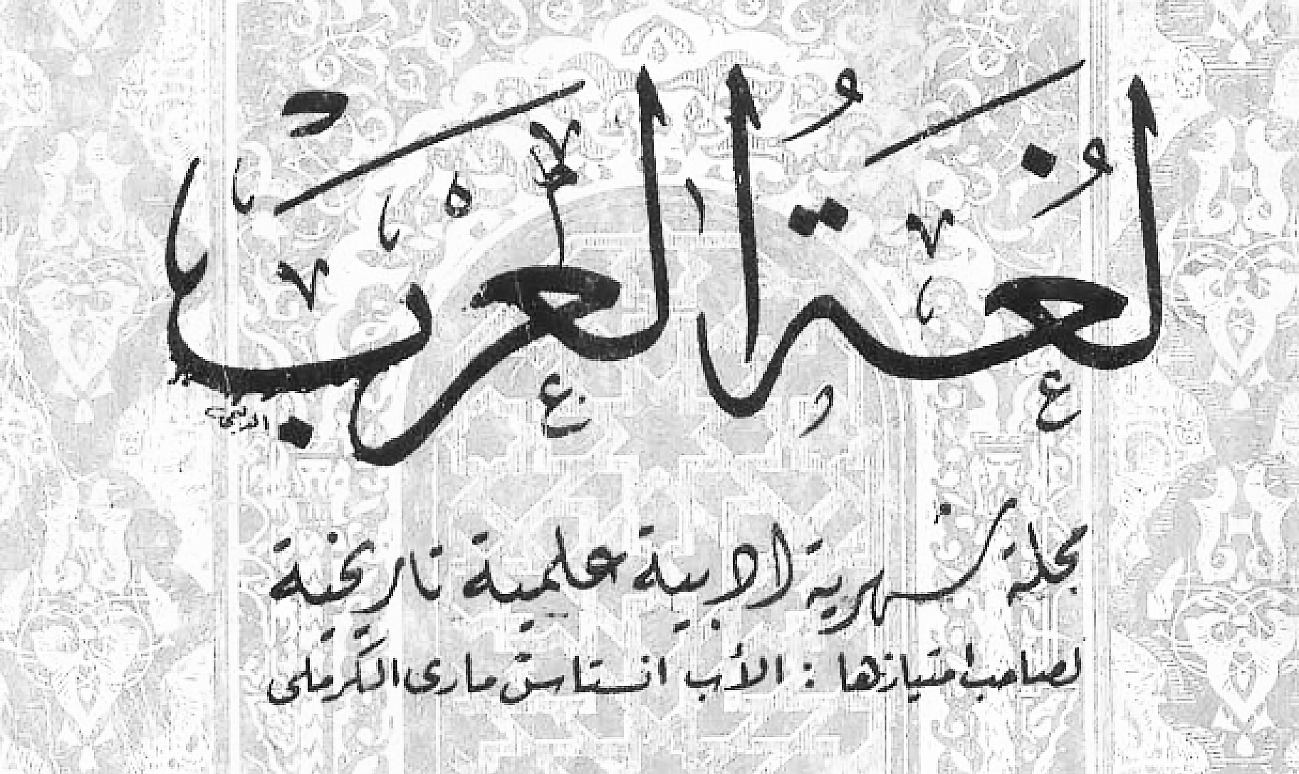 لُغَةُ العَرَب
مجلة شهرية ادبية علمية تاريخية
لصاحب امتيازها : الأب انستاس مارى الكرملى